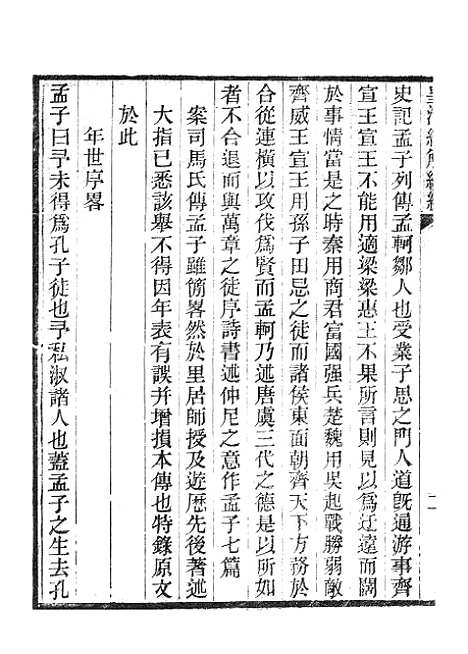 史記孟子列傳孟軻鄒人也受業子思之門人道旣通游事齊
宣王宣王不能用適梁梁惠王不果所言則見以爲迂遠而闊
於事情當是之時秦用商君富國强兵楚魏用吳起戰勝弱敵
齊威王宣王用孫子田忌之徒而諸侯東面朝齊天下方務於
合從連橫以攻伐爲賢而孟軻乃述唐虞三代之德是以所如
者不合退而與萬章之徒序詩書述仲尼之意作孟子七篇
案司馬氏傳孟子雖簡畧然於里居師授及遊歷先後著述
大指已悉該舉不得因年表有誤幷增損本傳也特錄原文
於此
年世序畧
孟子曰予未得爲孔子徒也予私淑諸人也蓋孟子之生去孔